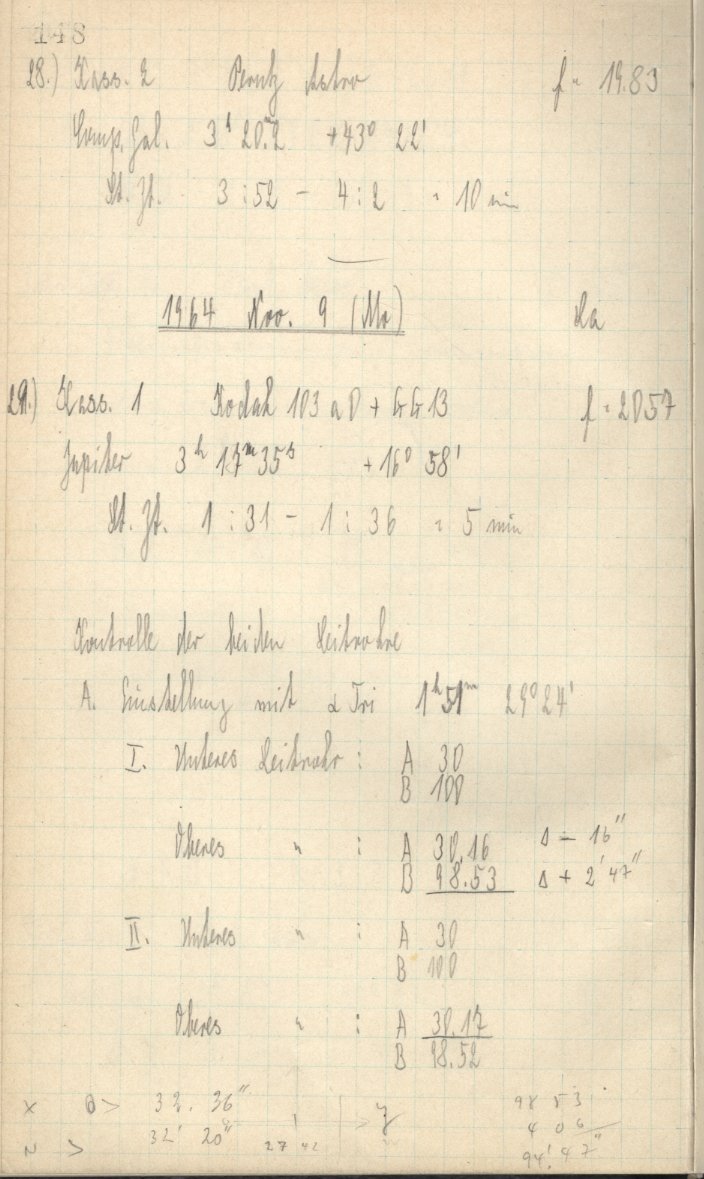 148
28.) Kass. 2 Perutz Astro f = 19.83
Comp. Gal. 3h 20m.2 +43° 22'
St. Zt. 3:52 - 4:2 = 10 min
1964 Nov. 9 (Mo) La
29.) Kass. 1 Kodak 103 a D + GG 13 f = 20.57
Jupiter 3h 17m 35s +16° 58'
St. Zt. 1:31 - 1:36 = 5 min
Kontrolle der beiden Leitrohre
A. Einstellung mit α Tri 1h 51m 29° 24'
I. Unteres Leitrohr : A 30
B 100
Oberes " : A 30.16 Δ - 16"
B 98.53 Δ + 2' 47"
II. Unteres " : A 30
B 100
Oberes " : A 30.17
B 98.52
32. 36" 98 53
32' 20" 27 42 4 06
94' 47"